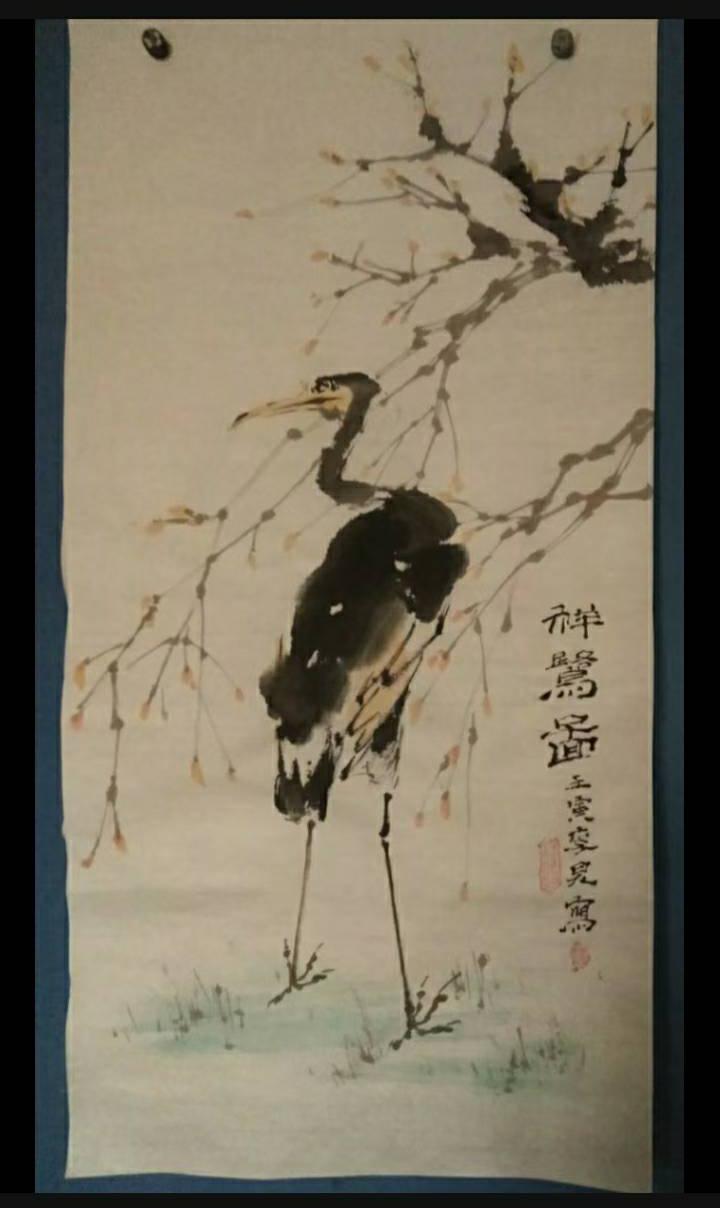 祥鷺圖壬寅李寫